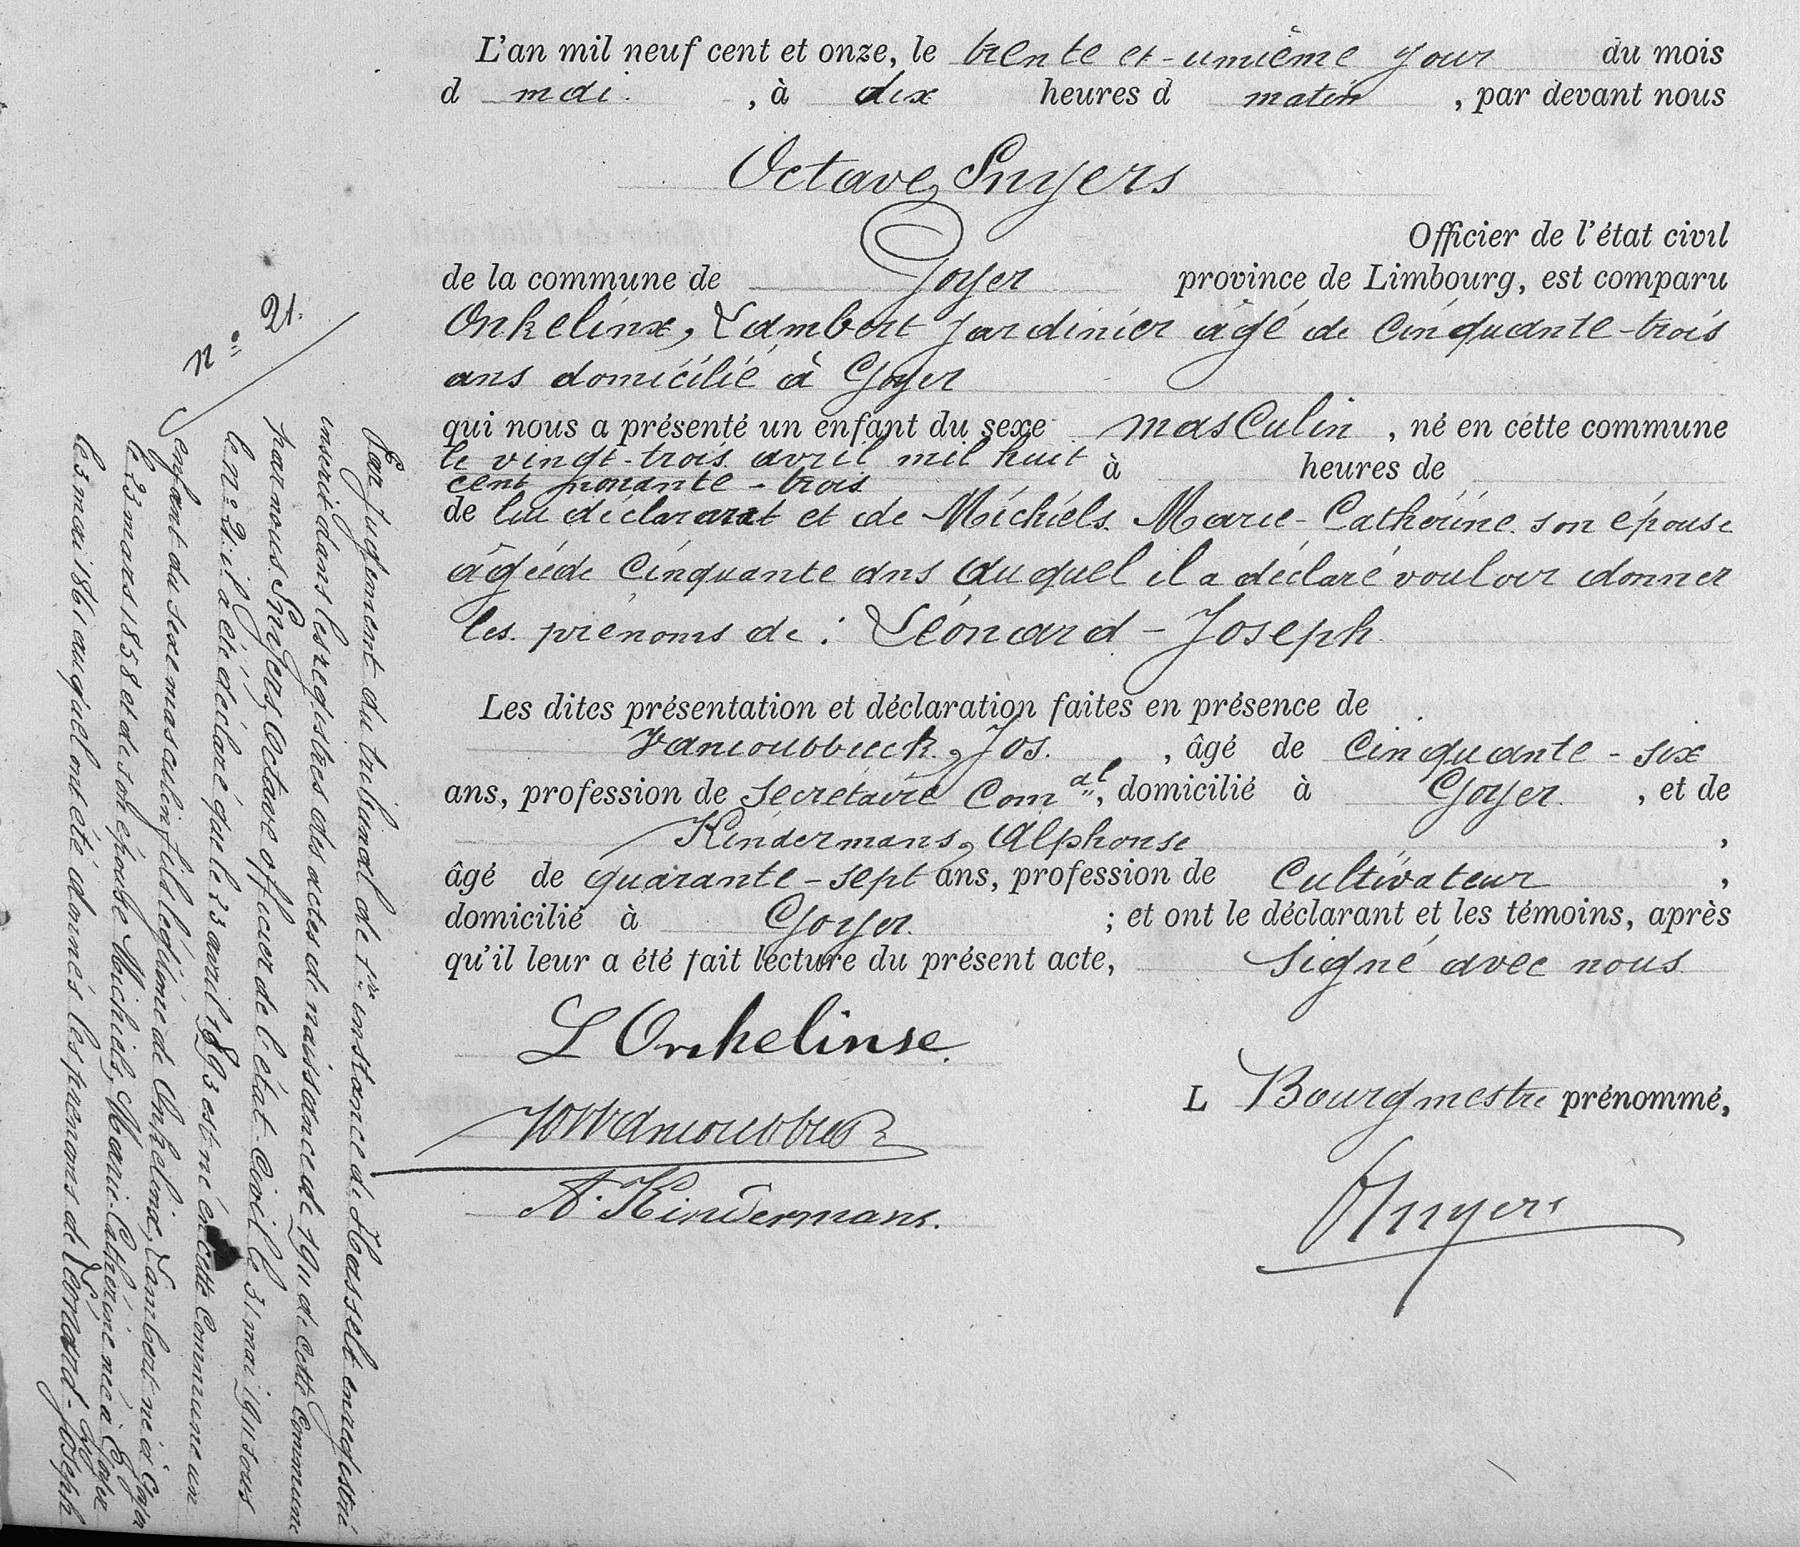 L'an mil neuf cent et onze, le trente et-unième jour du mois
d mai. , à dix heures d matin , par devant nous
Octave Snyers
Officier de l'état civil
de la commune de Goyer province de Limbourg, est comparu
Onkelinx, Lambert jardinier âgé de Cinquante-trois
ans domicilié à Goyer
qui nous a présenté un enfant du sexe masculin , né en cette commune
le vingt-trois avril mil huit à heures de
cent nonante-trois
de lui déclarant et de Michiels Marie-Cathérine son épouse
âgée de Cinquante ans auquel il a déclaré vouloir donner
les prénoms de : Léonard-Joseph
Les dites présentation et déclaration faites en présence de
Vanroubbeeck, Jos. , âgé de Cinquante-six
ans, profession de Secrétaire Com al, domicilié à Goyer , et de
Kindermans, Alphonse ,
âgé de quarante-sept ans, profession de Cultivateur ,
domicilié à Goyer. ; et ont le déclarant et les témoins, après
qu'il leur a été fait lecture du présent acte, signé avec nous
L Onkelinx.
L Bourgmestre prénommé,
A. Kindermans.
Snyers
n° 21.
Par jugement du tribunal de 1re instance de Hasselt enregistré
inscrit dans les registres des actes de naissance de 1911 de cette commune
par nous Snyers, Octave officier de l'état-Civil le 31 mai 1911 sous
le n° 21 il a été déclaré que le 23 avril 1893 est né en cette Commune un
enfant du sexe masculin fils légitime de Onkelinx, Lambert né à Goyer
le 23 mars 1858 et de son épouse Michiels, Marie-Cathérine née à Goyer
le 3 mai 1861 auquel ont été donnés les prénoms de Léonard-Joseph